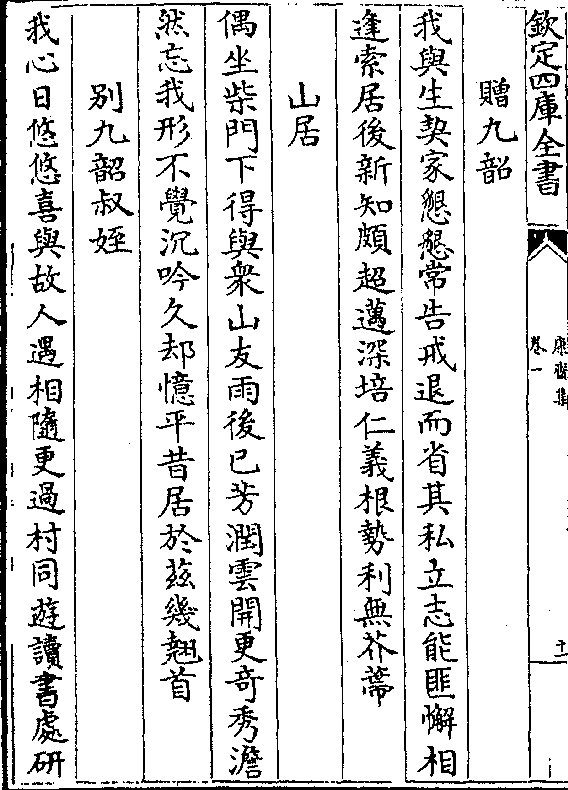 欽定四庫全書
卷一
贈九韶
我與生契家懇懇常告戒退而省其私立志能匪懈相
逢索居後新知頗超邁深培仁義根勢利無芥蔕
山居
偶坐柴門下得與衆山友雨後已芳潤雲開更奇秀澹
然忘我形不覺沉吟久却憶平昔居於兹幾翹首
别九韶叔姪
我心日悠悠喜與故人遇相隨更過村同遊讀書處研